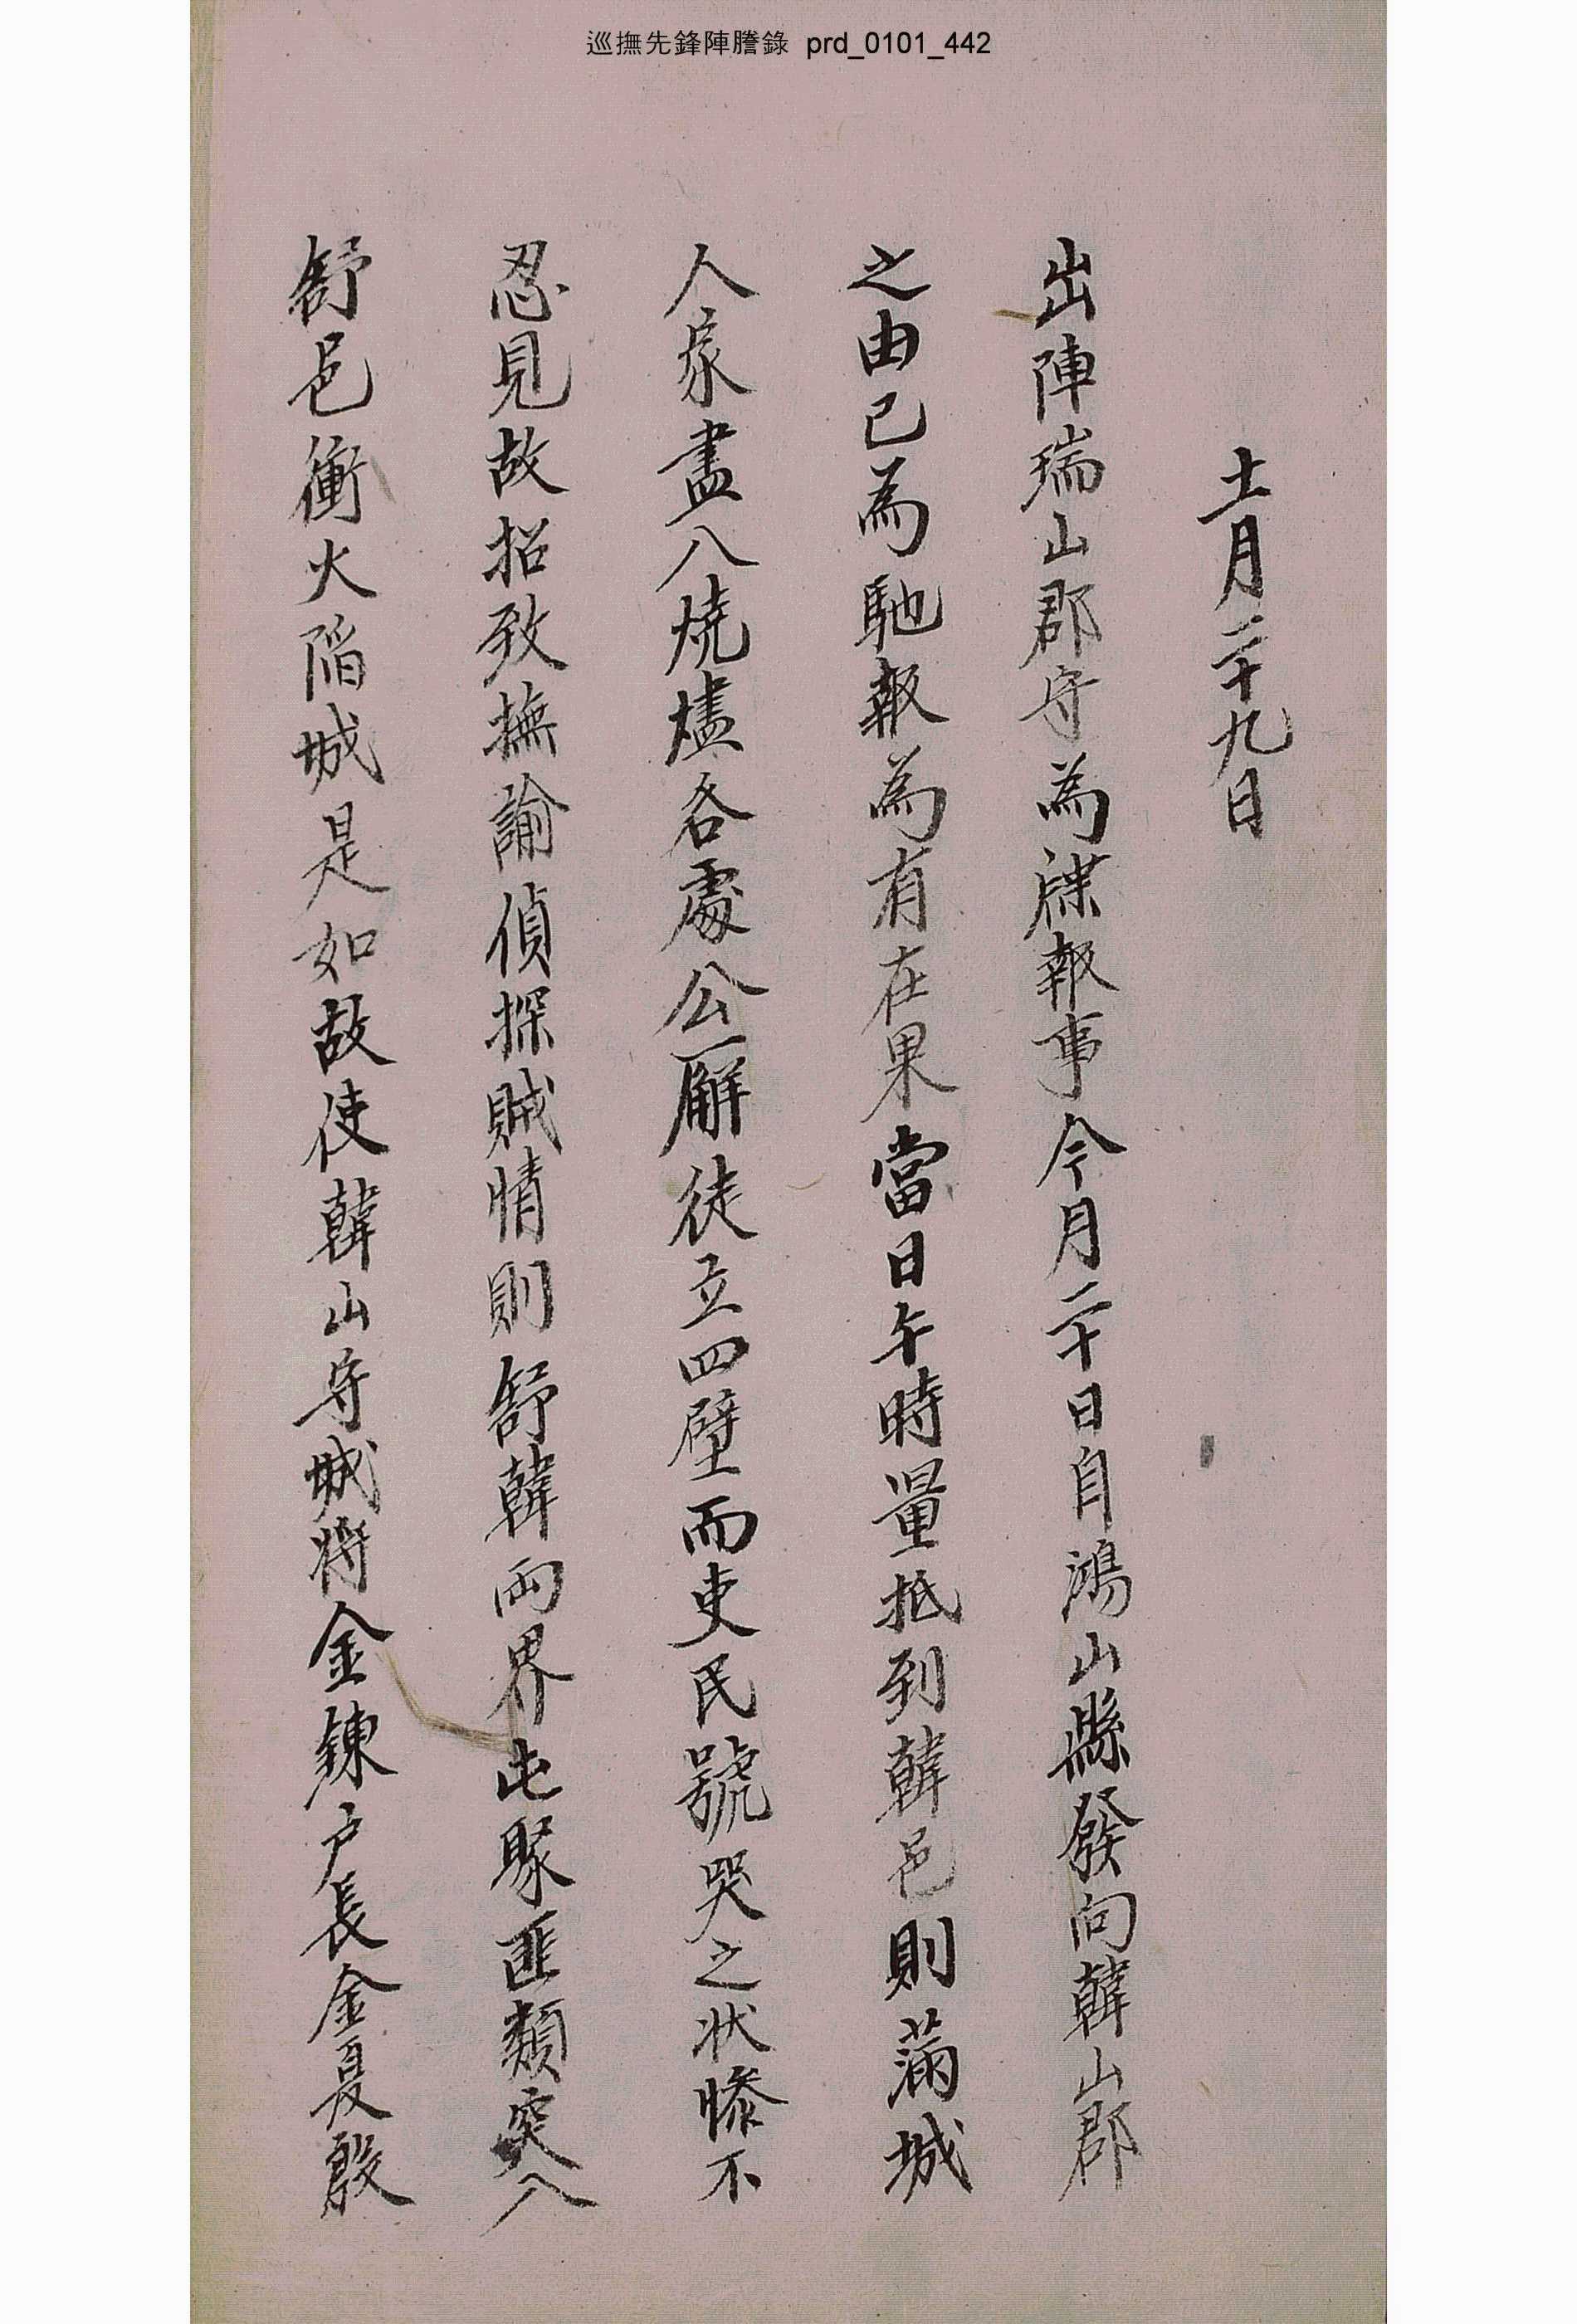 巡撫先鋒陣謄錄 prd_0101_442
十一月二十九日
出陣瑞山郡守為牒報事今月二十日自鴻山縣發向韓山郡
之由已為馳報為有在果當日午時量抵到韓邑則滿城
人家盡入燒燼各處公廨徒立四壁而吏民號哭之狀慘不
忍見故招致撫諭偵探賊情則舒韓兩界屯聚匪類突入
舒邑衝火陷城是如故使韓山守城將金鍊戶長金夏殷